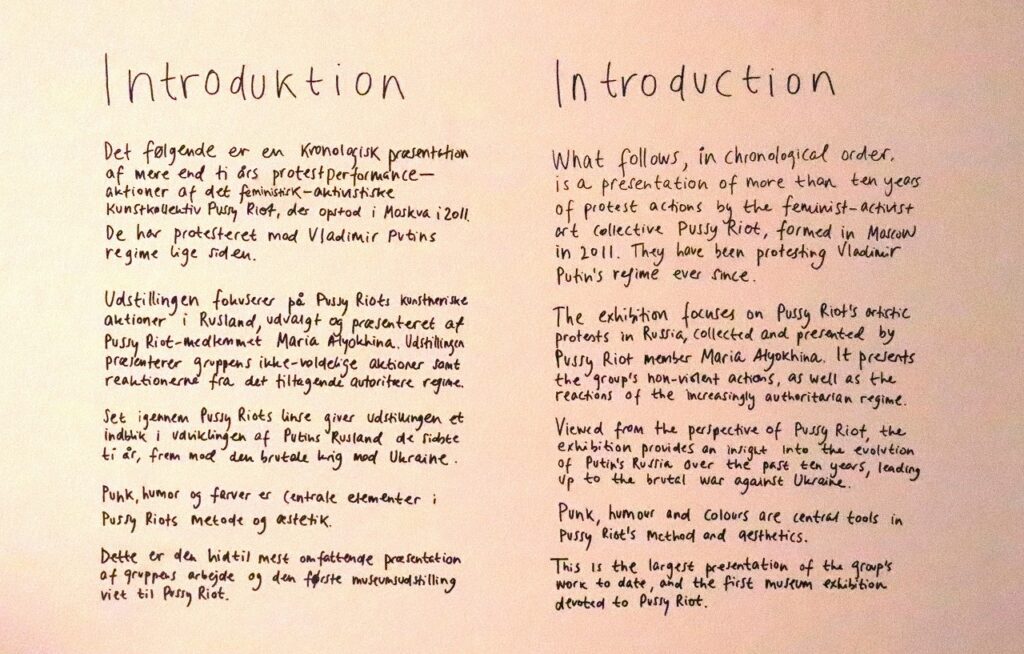 Introduktion
Det følgende er en kronologisk præsentation
af mere end ti års protestperformance—
aktioner af det feministisk-aktivistiske
kunstkollektiv Pussy Riot, der opstod i Moskva i 2011.
De har protesteret mod Vladimir Putins
regime lige siden.
Udstillingen fokuserer på Pussy Riots kunstneriske
aktioner i Rusland, udvalgt og præsenteret af
Pussy Riot-medlemmet Maria Alyokhina. Udstillingen
præsenterer gruppens ikke-voldelige aktioner samt
reaktionerne fra det tiltagende autoritære regime.
Set igennem Pussy Riots linse giver udstillingen et
indblik i udviklingen af Putins Rusland de sidste
ti år, frem mod den brutale krig mod Ukraine.
Punk, humor og farver er centrale elementer i
Pussy Riots metode og æstetik.
Dette er den hidtil mest omfattende præsentation
af gruppens arbejde og den første museumsudstilling
viet til Pussy Riot.
Introduction
What follows, in chronological order,
is a presentation of more than ten years
of protest actions by the feminist-activist
art collective Pussy Riot, formed in Moscow
in 2011. They have been protesting Vladimir
Putin's regime ever since.
The exhibition focuses on Pussy Riot's artistic
protests in Russia, collected and presented by
Pussy Riot member Maria Alyokhina. It presents
the group's non-violent actions, as well as the
reactions of the increasingly authoritarian regime.
Viewed from the perspective of Pussy Riot, the
exhibition provides an insight into the evolution
of Putin's Russia over the past ten years, leading
up to the brutal war against Ukraine.
Punk, humour and colours are central tools in
Pussy Riot's method and aesthetics.
This is the largest presentation of the group's
work to date, and the first museum exhibition
devoted to Pussy Riot.